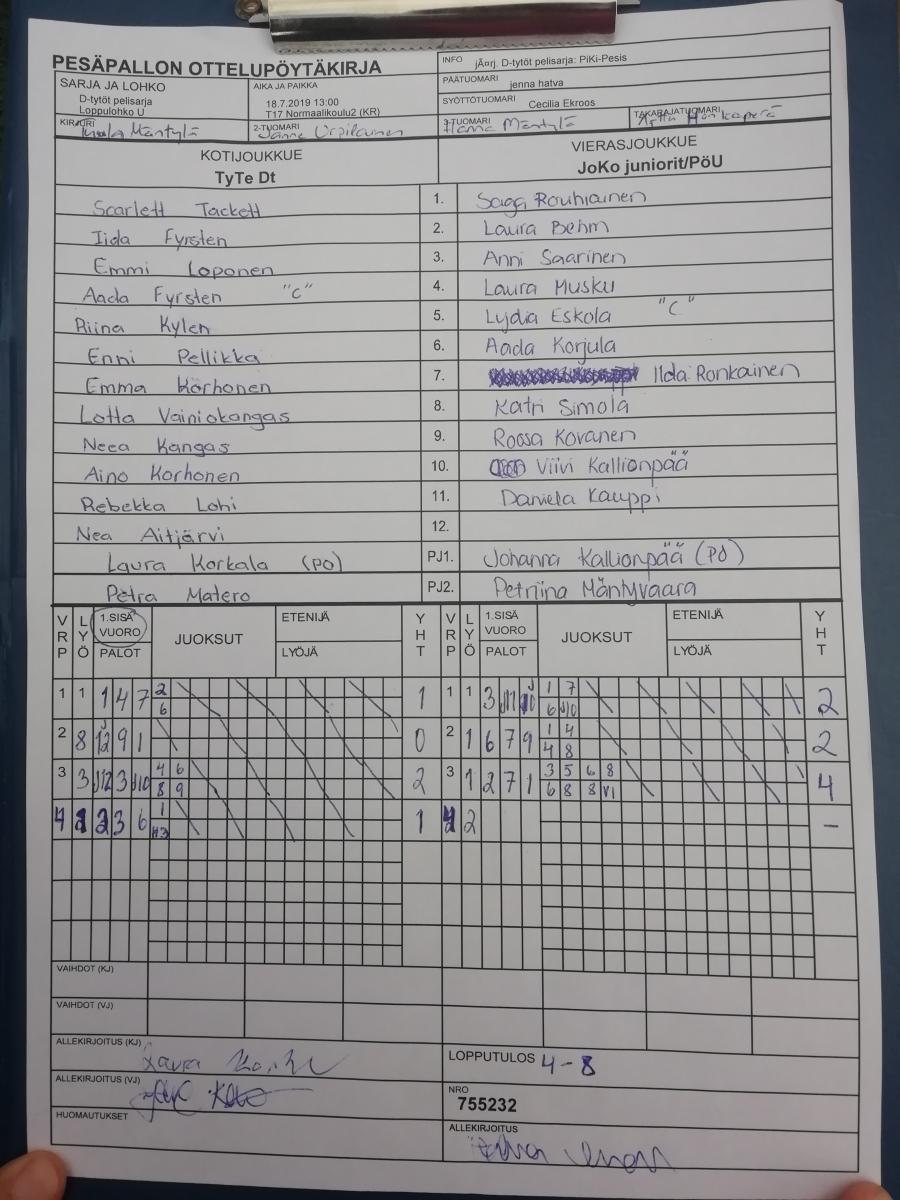 PESÄPALLON OTTELUPÖYTÄKIRJA
INFO jÃ¤rj. D-tytöt pelisarja: PiKi-Pesis
PÄÄTUOMARI jenna hatva
SYÖTTÖTUOMARI Cecilia Ekroos
SARJA JA LOHKO
D-tytöt pelisarja
Loppulohko U
AIKA JA PAIKKA
18.7.2019 13:00
T17 Normaalikoulu2 (KR)
KIRJURI Mäntylä
2-TUOMARI Urpilainen
3-TUOMARI Mäntylä
TAKARAJATUOMARI
KOTIJOUKKUE
TyTe Dt
VIERASJOUKKUE
JoKo juniorit/PöU
Scarlett Tackett 1. Saga Rouhiainen
Iida Fyrsten 2. Laura Behm
Emmi Loponen 3. Anni Saarinen
Aada Fyrsten "C" 4. Laura Musku
Riina Kylen 5. Lydia Eskola "C"
Enni Pellikka 6. Aada Korjula
Emma Korhonen 7. Ilda Ronkainen
Lotta Vainiokangas 8. Katri Simola
Neea Kangas 9. Roosa Kovanen
Aino Korhonen 10. Viivi Kallionpää
Rebekka Lohi 11. Daniela Kauppi
Nea Aitjärvi 12.
Laura Korkala (PO) PJ1. Johanna Kallionpää (PO)
Petra Matero PJ2. Petriina Mäntyvaara
VRP LYÖ 1.SISÄ VUORO PALOT JUOKSUT ETENIJÄ LYÖJÄ YHT VRP LYÖ 1.SISÄ VUORO PALOT JUOKSUT ETENIJÄ LYÖJÄ YHT
1 1 1 4 7 2 6 1 1 1 3 1 7 6 2
2 8 12 9 1 0 2 1 6 7 9 1 4 4 8 2
3 3 3 4 6 8 9 2 3 1 2 7 1 3 5 6 8 6 8 8 4
4 3 6 1 1 2 -
VAIHDOT (KJ)
VAIHDOT (VJ)
ALLEKIRJOITUS (KJ)
LOPPUTULOS 4-8
ALLEKIRJOITUS (VJ)
NRO
755232
HUOMAUTUKSET
ALLEKIRJOITUS